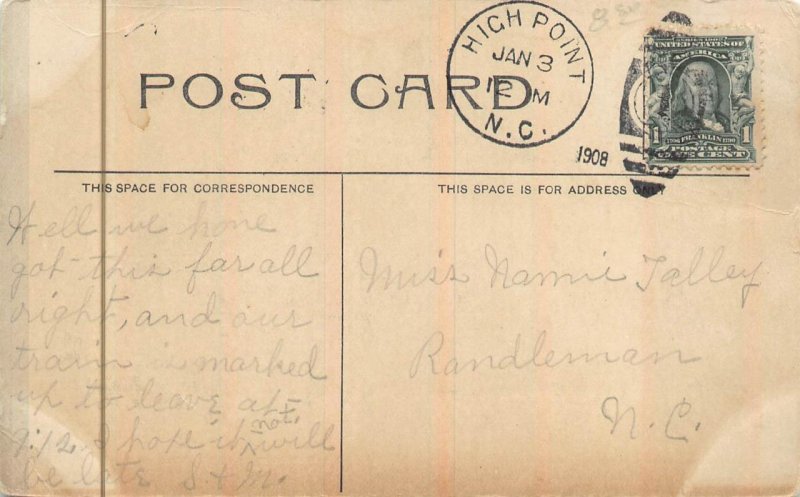 8
HIGH POINT
JAN 3
12 M
N.C.
1908
UNITED STATES OF
AMERICA
1 1
1706 FRANKLIN 1790
POSTAGE
ONE CENT
POST CARD
THIS SPACE FOR CORRESPONDENCE
THIS SPACE IS FOR ADDRESS ONLY
Well we have
got this far all
right, and our
train is marked
up to leave at
9:12. I hope it will
not
be late S + M.
Miss Nannie Talley
Randleman
N.C.